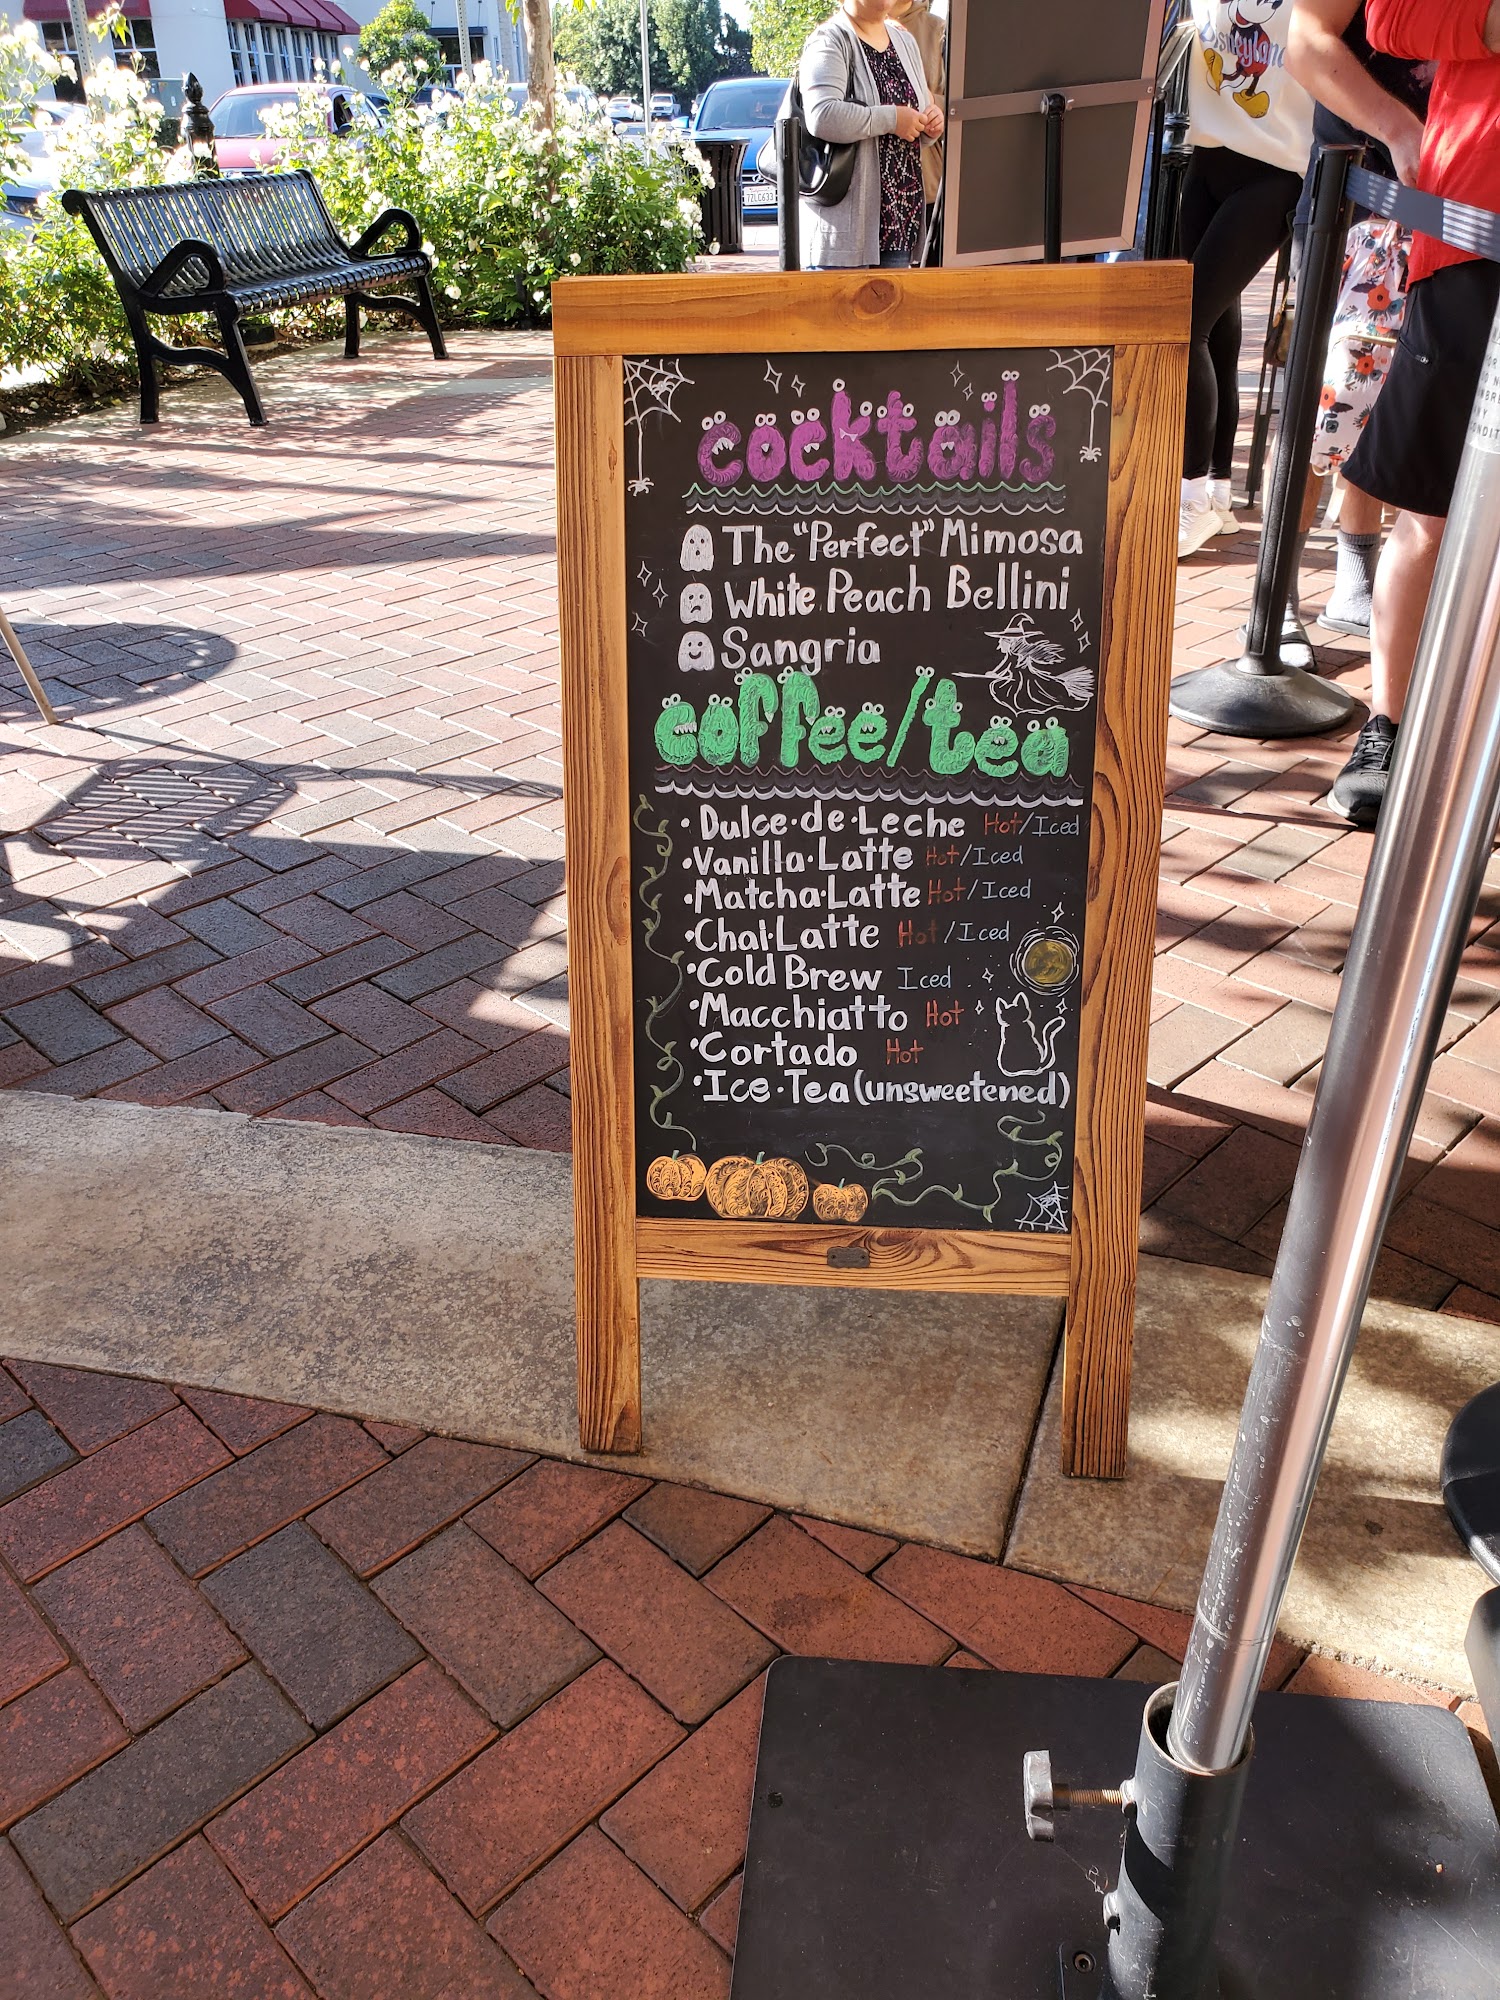 Disneyland
7ZLC633
cocktails
The "Perfect" Mimosa
White Peach Bellini
Sangria
coffee/tea
• Dulce·de·Leche Hot/Iced
• Vanilla·Latte Hot/Iced
• Matcha·Latte Hot/Iced
• Chai·Latte Hot/Iced
• Cold Brew Iced
• Macchiatto Hot
• Cortado Hot
• Ice·Tea (unsweetened)